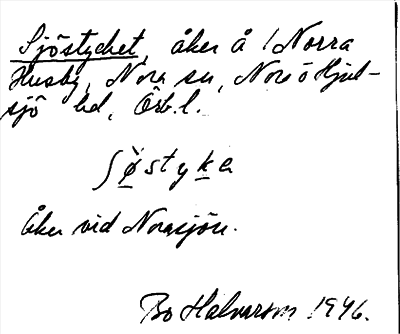 Sjöstycket, åker å 1 Norra
Husby, Nora sn, Nora o Hjul-
sjö hd, Örb.l.
ʃø̀styke
Åker vid Norasjön.
Bo Halvarson 1946.